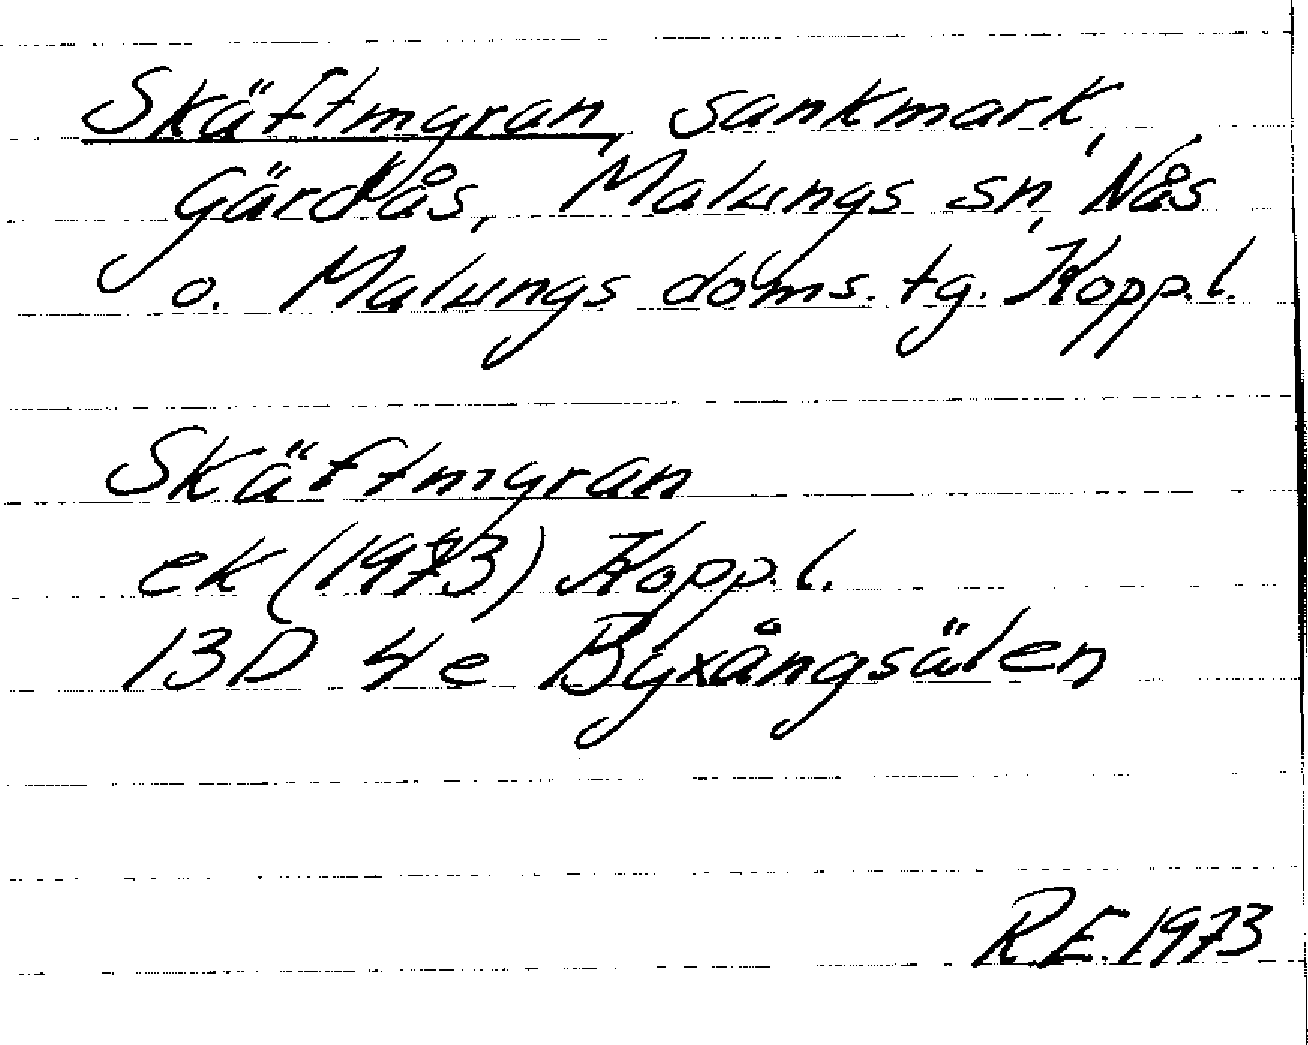 Skäftmyran, sankmark,
Gärdås, Malungs sn, Nås
o. Malungs doms. tg. Kopp.l.
Skäftmyran
ek (1973) Kopp.l.
13D 4e Byxångsälen
R.E. 1973